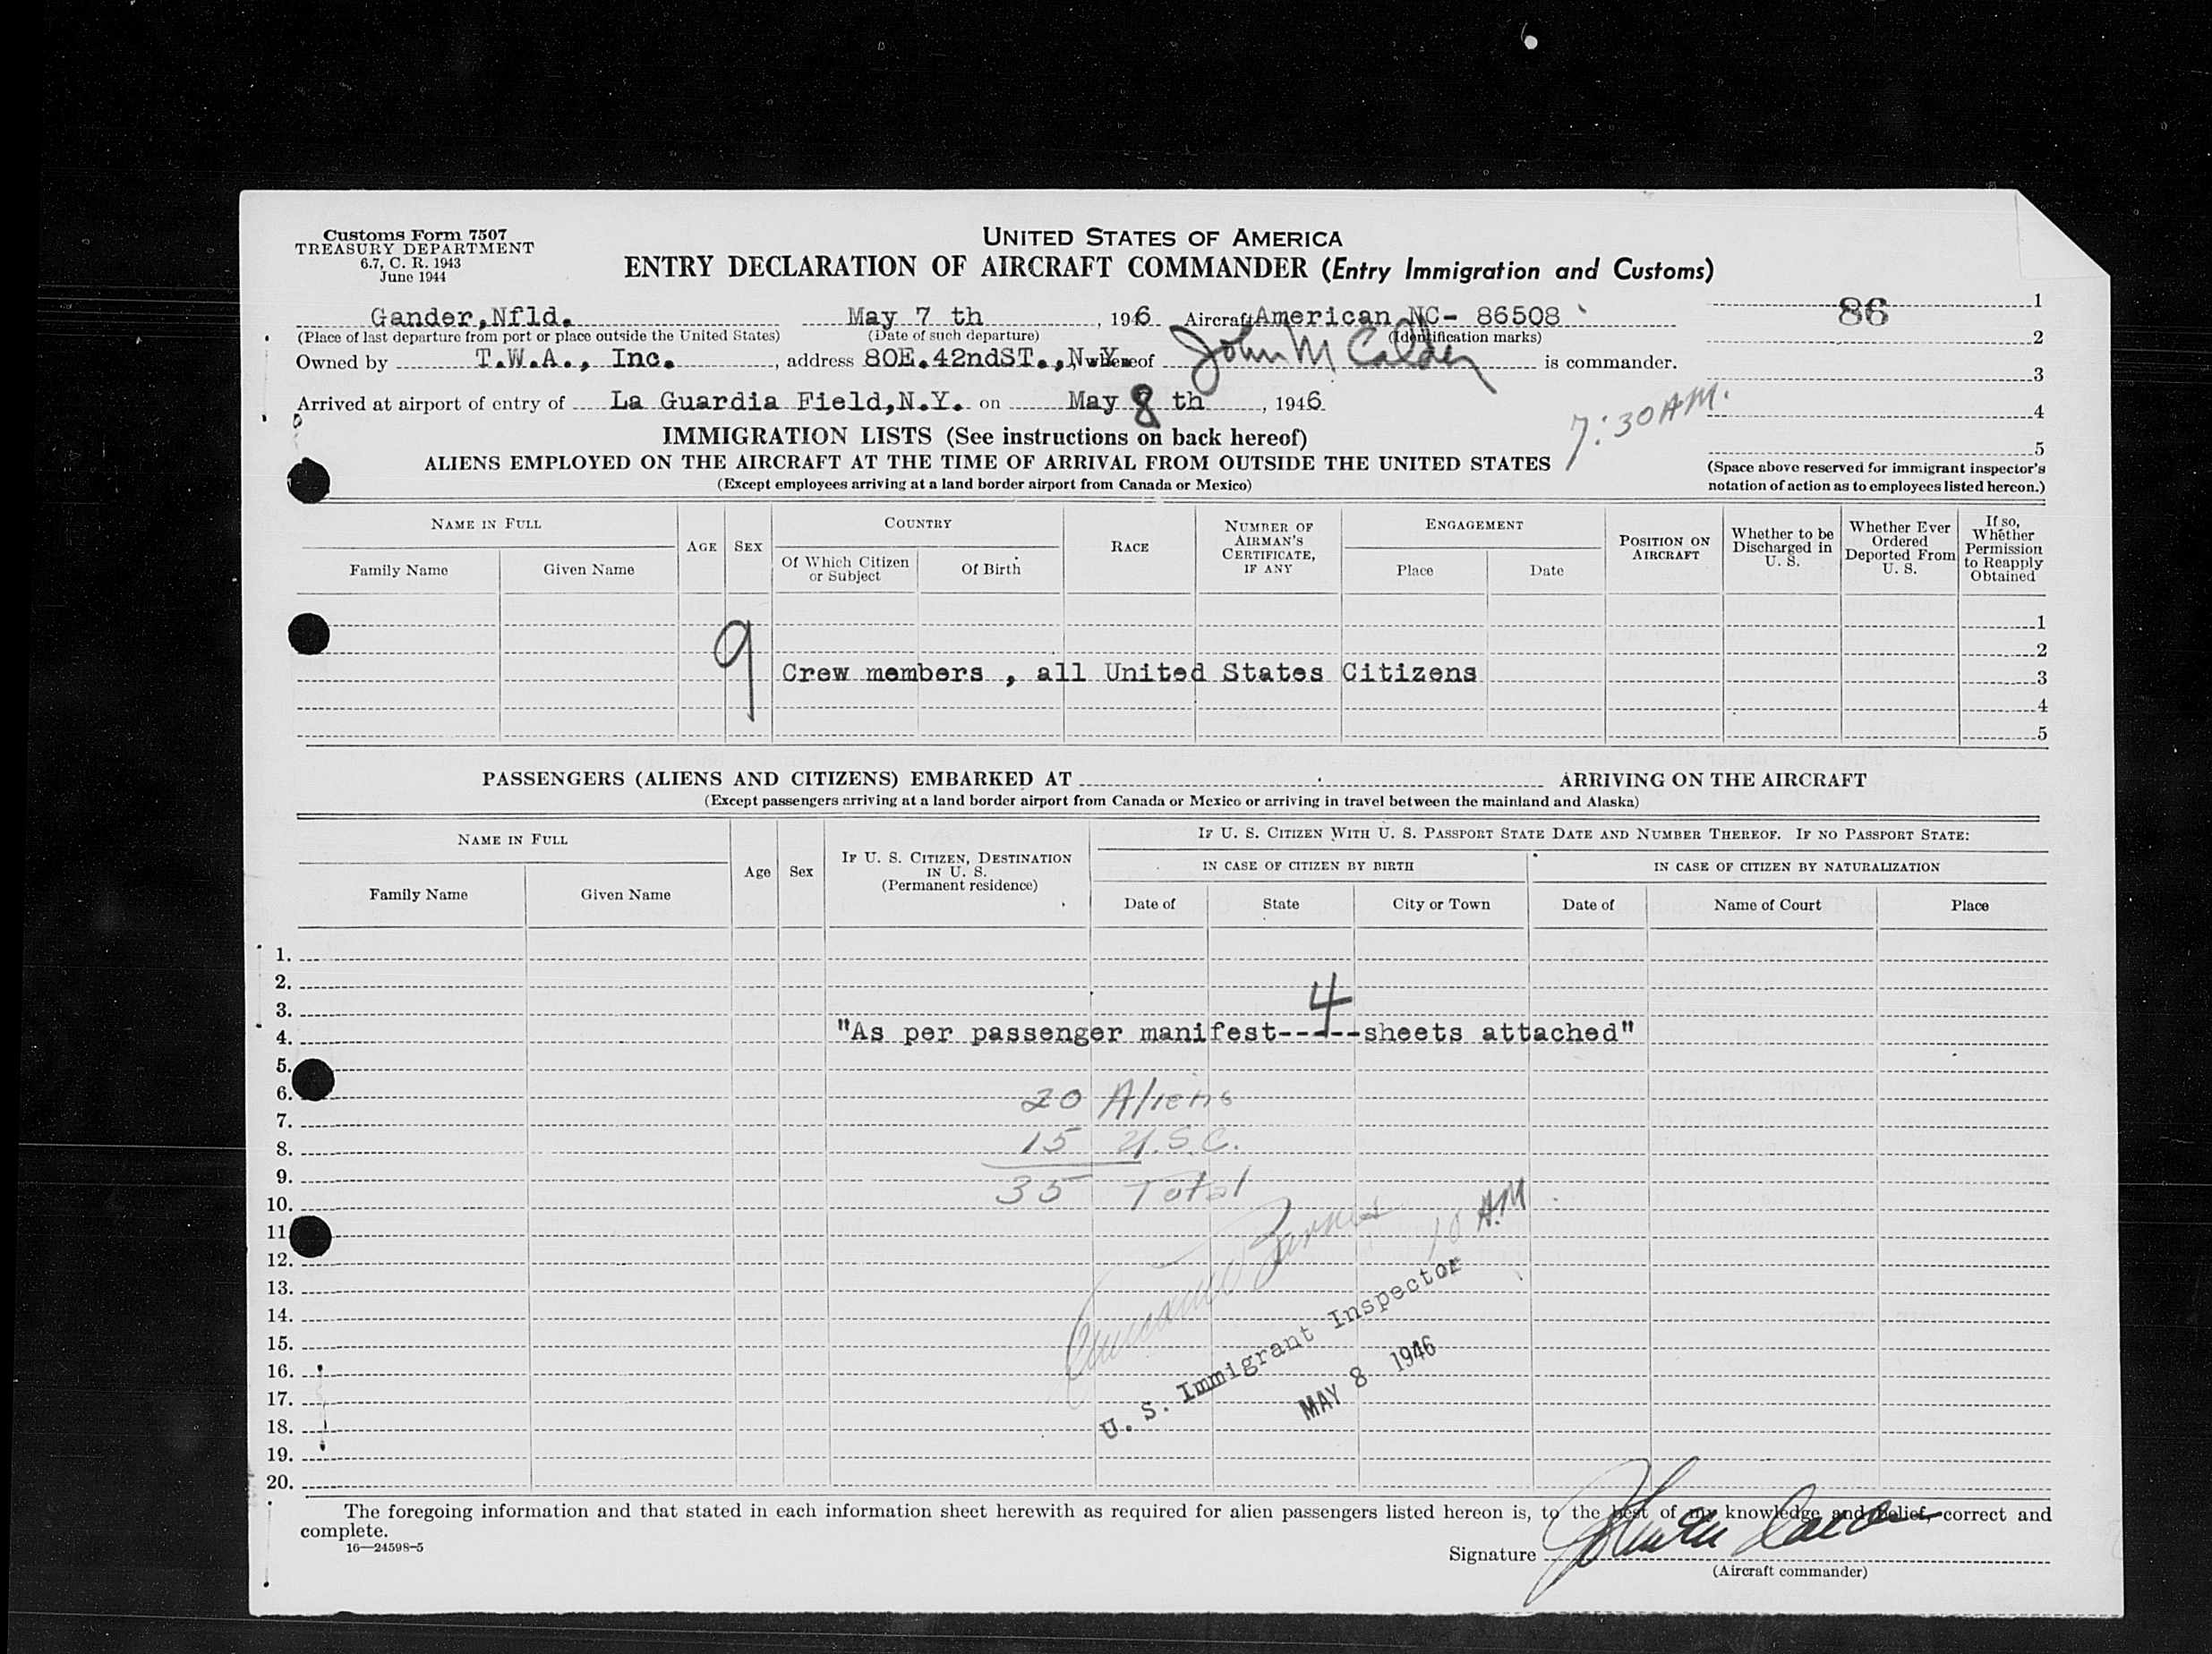 Customs Form 7507
TREASURY DEPARTMENT
6.7, C. R. 1943
June 1944
UNITED STATES OF AMERICA
ENTRY DECLARATION OF AIRCRAFT COMMANDER (Entry Immigration and Customs)
Gander,Nfld. May 7 th , 1946 Aircraft American NC- 86508
(Place of last departure from port or place outside the United States) (Date of such departure) (Identification marks)
Owned by T.W.A., Inc. , address 80E.42ndST.,N.Y. whereof John M Calder is commander.
Arrived at airport of entry of La Guardia Field,N.Y. on May 8 th , 1946
7:30 AM.
86
1
2
3
4
5
(Space above reserved for immigrant inspector's
notation of action as to employees listed hereon.)
IMMIGRATION LISTS (See instructions on back hereof)
ALIENS EMPLOYED ON THE AIRCRAFT AT THE TIME OF ARRIVAL FROM OUTSIDE THE UNITED STATES
(Except employees arriving at a land border airport from Canada or Mexico)
NAME IN FULL
Family Name
Given Name
AGE
SEX
COUNTRY
Of Which Citizen
or Subject
Of Birth
RACE
NUMBER OF
AIRMAN'S
CERTIFICATE,
IF ANY
ENGAGEMENT
Place
Date
POSITION ON
AIRCRAFT
Whether to be
Discharged in
U. S.
Whether Ever
Ordered
Deported From
U. S.
If so,
Whether
Permission
to Reapply
Obtained
1
2
9 Crew members , all United States Citizens 3
4
5
PASSENGERS (ALIENS AND CITIZENS) EMBARKED AT ARRIVING ON THE AIRCRAFT
(Except passengers arriving at a land border airport from Canada or Mexico or arriving in travel between the mainland and Alaska)
NAME IN FULL
Family Name
Given Name
Age
Sex
IF U. S. CITIZEN, DESTINATION
IN U. S.
(Permanent residence)
IF U. S. CITIZEN WITH U. S. PASSPORT STATE DATE AND NUMBER THEREOF. IF NO PASSPORT STATE:
IN CASE OF CITIZEN BY BIRTH
IN CASE OF CITIZEN BY NATURALIZATION
Date of
State
City or Town
Date of
Name of Court
Place
1.
2.
3.
4. "As per passenger manifest--4--sheets attached"
5.
6. 20 Aliens
7.
8. 15 U.S.C.
9.
10. 35 Total
11.
12. 10 AM
13.
14.
15.
16.
17.
18.
19.
20.
U. S. Immigrant Inspector
MAY 8 1946
The foregoing information and that stated in each information sheet herewith as required for alien passengers listed hereon is, to the best of my knowledge and belief, correct and
complete.
16—24598-5
Signature
(Aircraft commander)